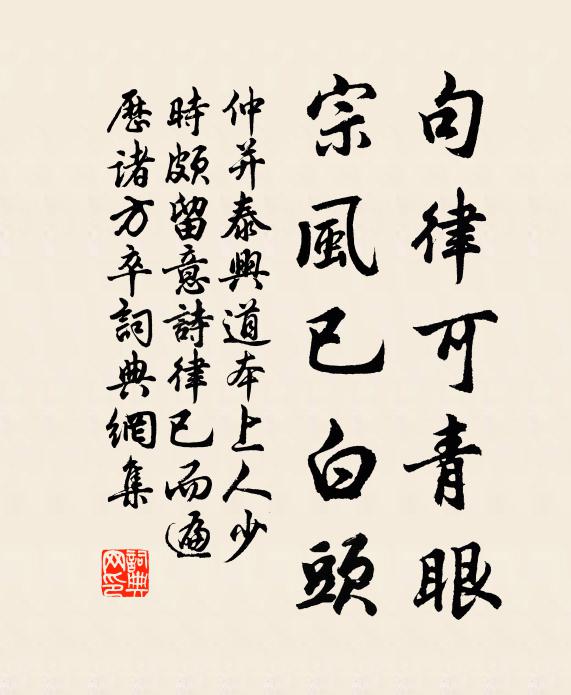 句律可青眼
宗風已白頭
仲并泰興道本上人少
時頗留意詩律已而遍
歷諸方卒詞典網集
詞典
网印